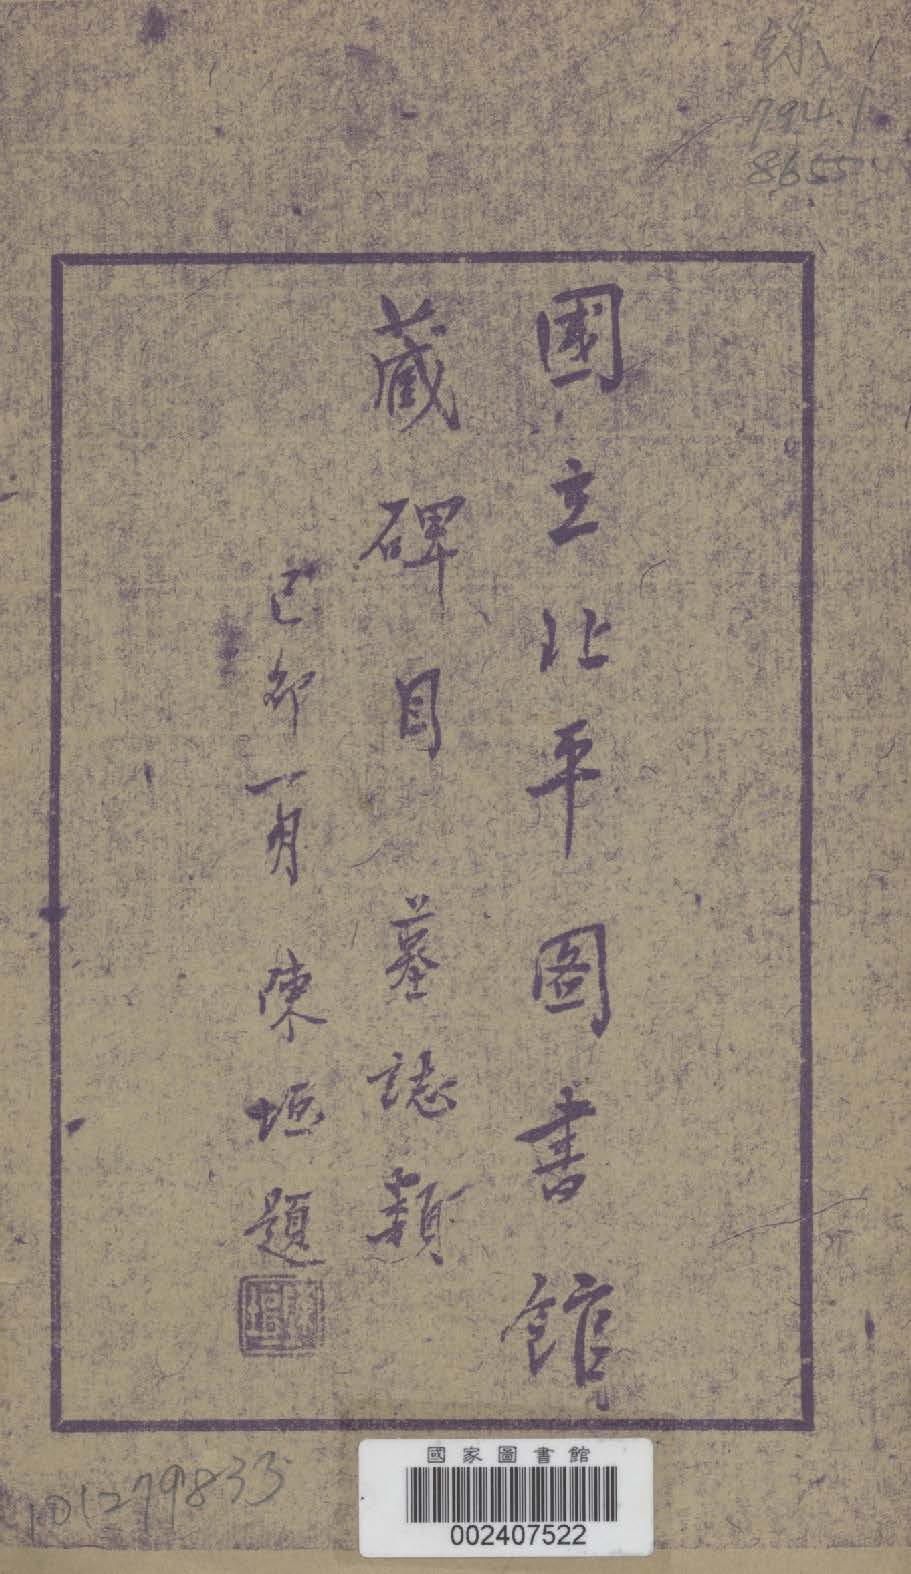 794.1
8655
國立北平圖書館
藏碑目墓誌類
己卯一月陳垣題
國家圖書館
002407522